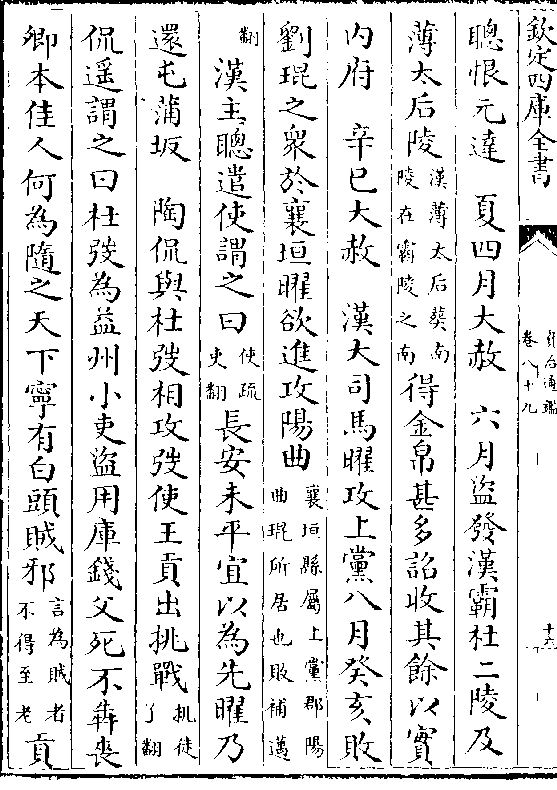 欽定四庫全書
資治通鑑
卷八十九
十六
聰恨元達 夏四月大赦 六月盜發漢霸杜二陵及
薄太后陵漢薄太后葬南陵在霸陵之南得金帛甚多詔收其餘以實
内府 辛巳大赦 漢大司馬曜攻上黨八月癸亥敗
劉琨之衆於襄垣曜欲進攻陽曲襄垣縣屬上黨郡陽曲琨所居也敗補邁
翻漢主聰遣使謂之曰使疏吏翻長安未平宜以為先曜乃
還屯蒲坂 陶侃與杜弢相攻弢使王貢出挑戰挑徒了翻
侃遥謂之曰杜弢為益州小吏盜用庫錢父死不犇喪
卿本佳人何為隨之天下寧有白頭賊邪言為賊者不得至老貢